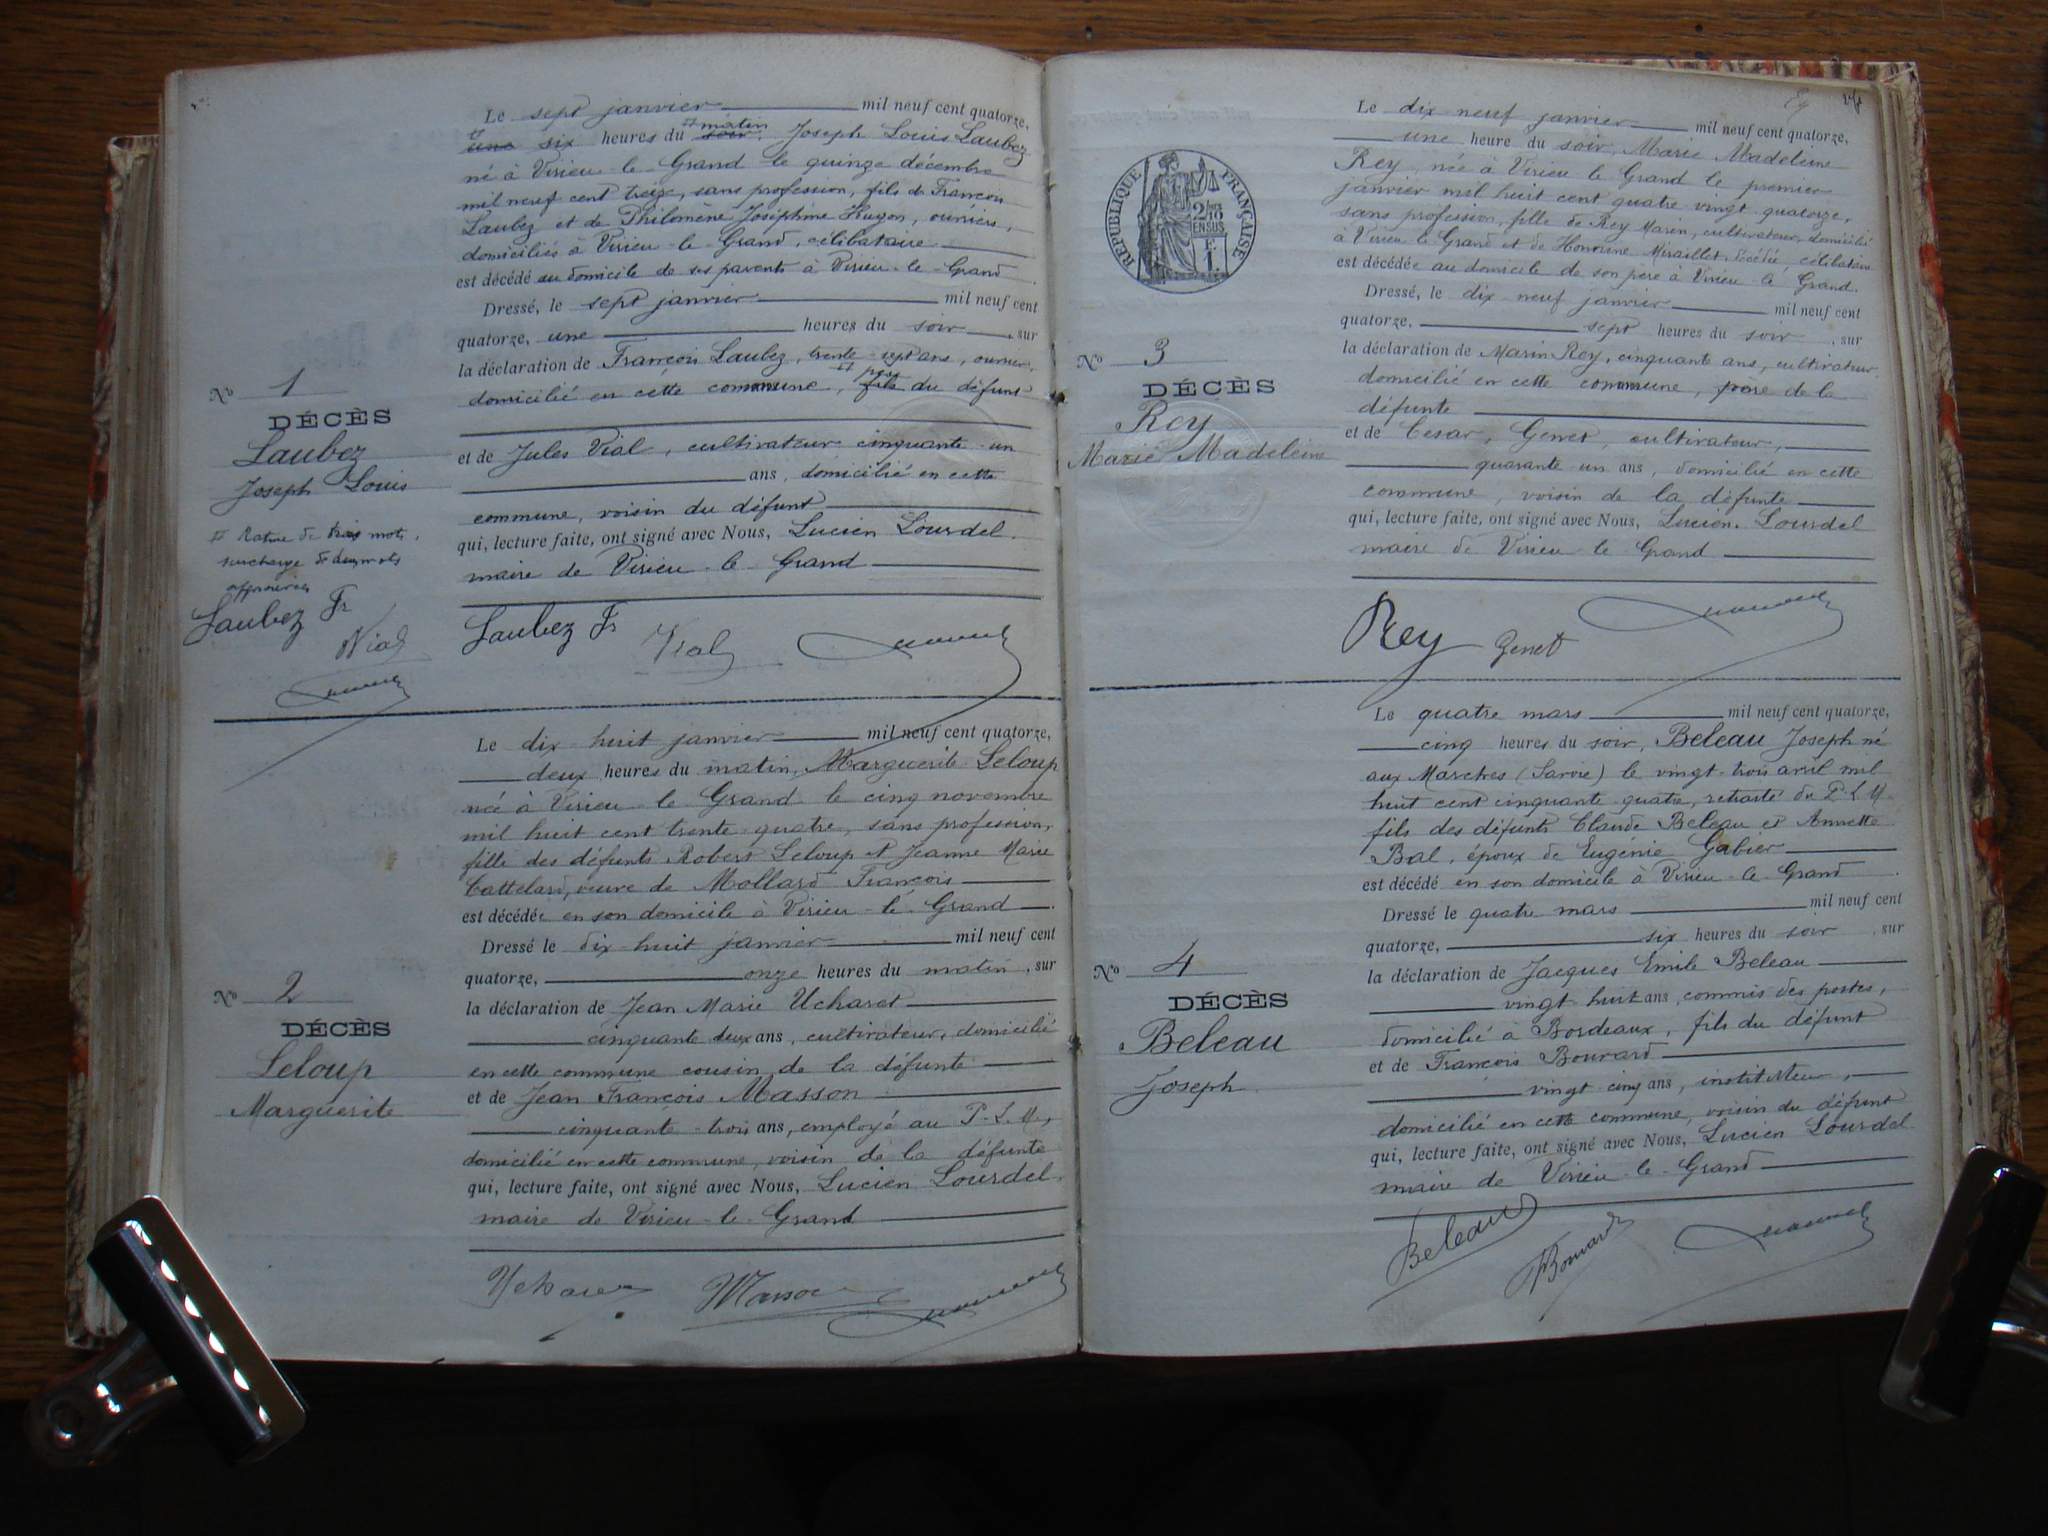 Le sept janvier mil neuf cent quatorze,
une six heures du matin soir, Joseph Louis Laubez
né à Virieu-le-Grand le quinze décembre
mil neuf cent treize, sans profession, fils de François
Laubez et de Philomène Joséphine Hugon, ouvriers,
domiciliés à Virieu-le-Grand, célibataire
est décédé au domicile de ses parents à Virieu-le-Grand.
Dressé, le sept janvier mil neuf cent
quatorze, une heures du soir, sur
la déclaration de François Laubez, trente-sept ans, ouvrier,
domicilié en cette commune, fils père du défunt
et de Jules Vial, cultivateur cinquante-un
ans, domicilié en cette
commune, voisin du défunt
qui, lecture faite, ont signé avec Nous, Lucien Lourdel.
maire de Virieu-le-Grand
Nº 1
DÉCÈS
Laubez
Joseph Louis
Rature de trois mots,
surcharge de deux mots
approuvées
Laubez Fr
Vial
Laubez Fr Vial
Le dix-huit janvier mil neuf cent quatorze,
deux heures du matin, Marguerite Leloup
née à Virieu-le-Grand le cinq novembre
mil huit cent trente-quatre, sans profession,
fille des défunts Robert Leloup et Jeanne Marie
Cattelard, veuve de Mollard François
est décédée en son domicile à Virieu-le-Grand.
Dressé le dix-huit janvier mil neuf cent
quatorze, onze heures du matin, sur
la déclaration de Jean Marie Ucharet
cinquante deux ans, cultivateur, domicilié
en cette commune cousin de la défunte
et de Jean François Masson
cinquante-trois ans, employé au P-L-M,
domicilié en cette commune, voisin de la défunte
qui, lecture faite, ont signé avec Nous, Lucien Lourdel,
maire de Virieu-le-Grand
Nº 2
DÉCÈS
Leloup
Marguerite
Masson
Le dix-neuf janvier mil neuf cent quatorze,
une heure du soir, Marie Madeleine
Rey, née à Virieu le Grand le premier
janvier mil huit cent quatre vingt quatorze,
sans profession, fille de Rey Marin, cultivateur, domicilié
à Virieu le Grand et de Honorine Miraillet, décédée célibataire
est décédée au domicile de son père à Virieu-le-Grand.
Dressé, le dix-neuf janvier mil neuf cent
quatorze, sept heures du soir, sur
la déclaration de Marin Rey, cinquante ans, cultivateur,
domicilié en cette commune, père de la
défunte
et de César, Genet, cultivateur,
quarante-un ans, domicilié en cette
commune, voisin de la défunte
qui, lecture faite, ont signé avec Nous, Lucien Lourdel
maire de Virieu-le-Grand
RÉPUBLIQUE FRANÇAISE
2/10
EN SUS
Nº 3
DÉCÈS
Rey
Marie Madeleine
Rey Genet
Le quatre mars mil neuf cent quatorze,
cinq heures du soir, Beleau Joseph né
aux Marches (Savoie) le vingt-trois avril mil
huit cent cinquante-quatre, retraité du P-L-M-
fils des défunts Claude Beleau et Annette
Bal, époux de Eugénie Gabier
est décédé en son domicile à Virieu-le-Grand.
Dressé le quatre mars mil neuf cent
quatorze, six heures du soir, sur
la déclaration de Jacques Emile Beleau
vingt-huit ans, commis des postes,
domicilié à Bordeaux, fils du défunt
et de François Bouvard
vingt-cinq ans, instituteur,
domicilié en cette commune, voisin du défunt
qui, lecture faite, ont signé avec Nous, Lucien Lourdel
maire de Virieu-le-Grand
Nº 4
DÉCÈS
Beleau
Joseph
Beleau Bouvard